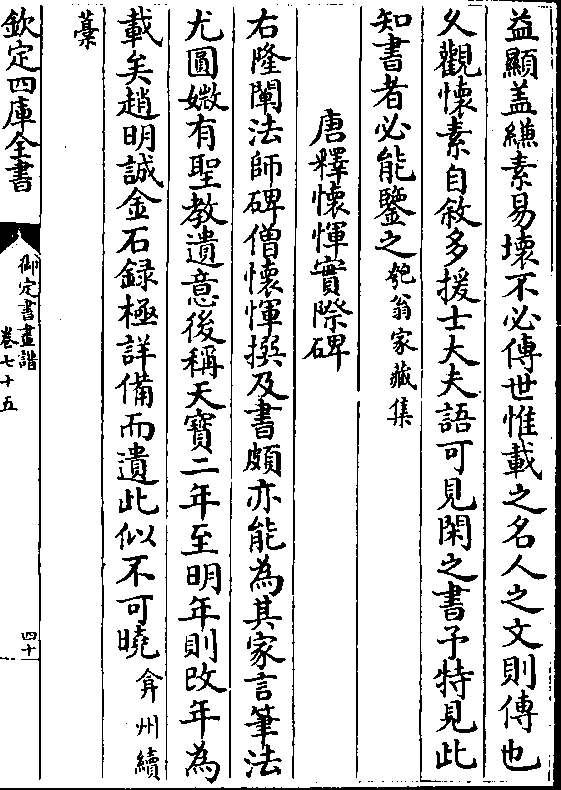 益顯盖縑素易壞不必傳世惟載之名人之文則傳也
久觀懷素自敘多援士大夫語可見閑之書予特見此
知書者必能鑒之匏翁家藏集
唐釋懷惲實際碑
右隆闡法師碑僧懷惲撰及書頗亦能為其家言筆法
尤圓媺有聖教遺意後稱天寶二年至明年則改年為
載矣趙明誠金石録極詳備而遺此似不可曉弇州續
藁
欽定四庫全書
御定書畫譜
卷七十五
四十